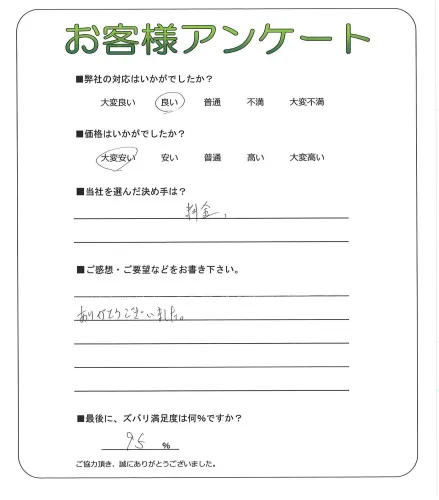 お客様アンケート
■弊社の対応はいかがでしたか？
大変良い 良い 普通 不満 大変不満
■価格はいかがでしたか？
大変安い 安い 普通 高い 大変高い
■当社を選んだ決め手は？
料金、
■ご感想・ご要望などをお書き下さい。
ありがとうございました。
■最後に、ズバリ満足度は何%ですか？
95 %
ご協力頂き、誠にありがとうございました。